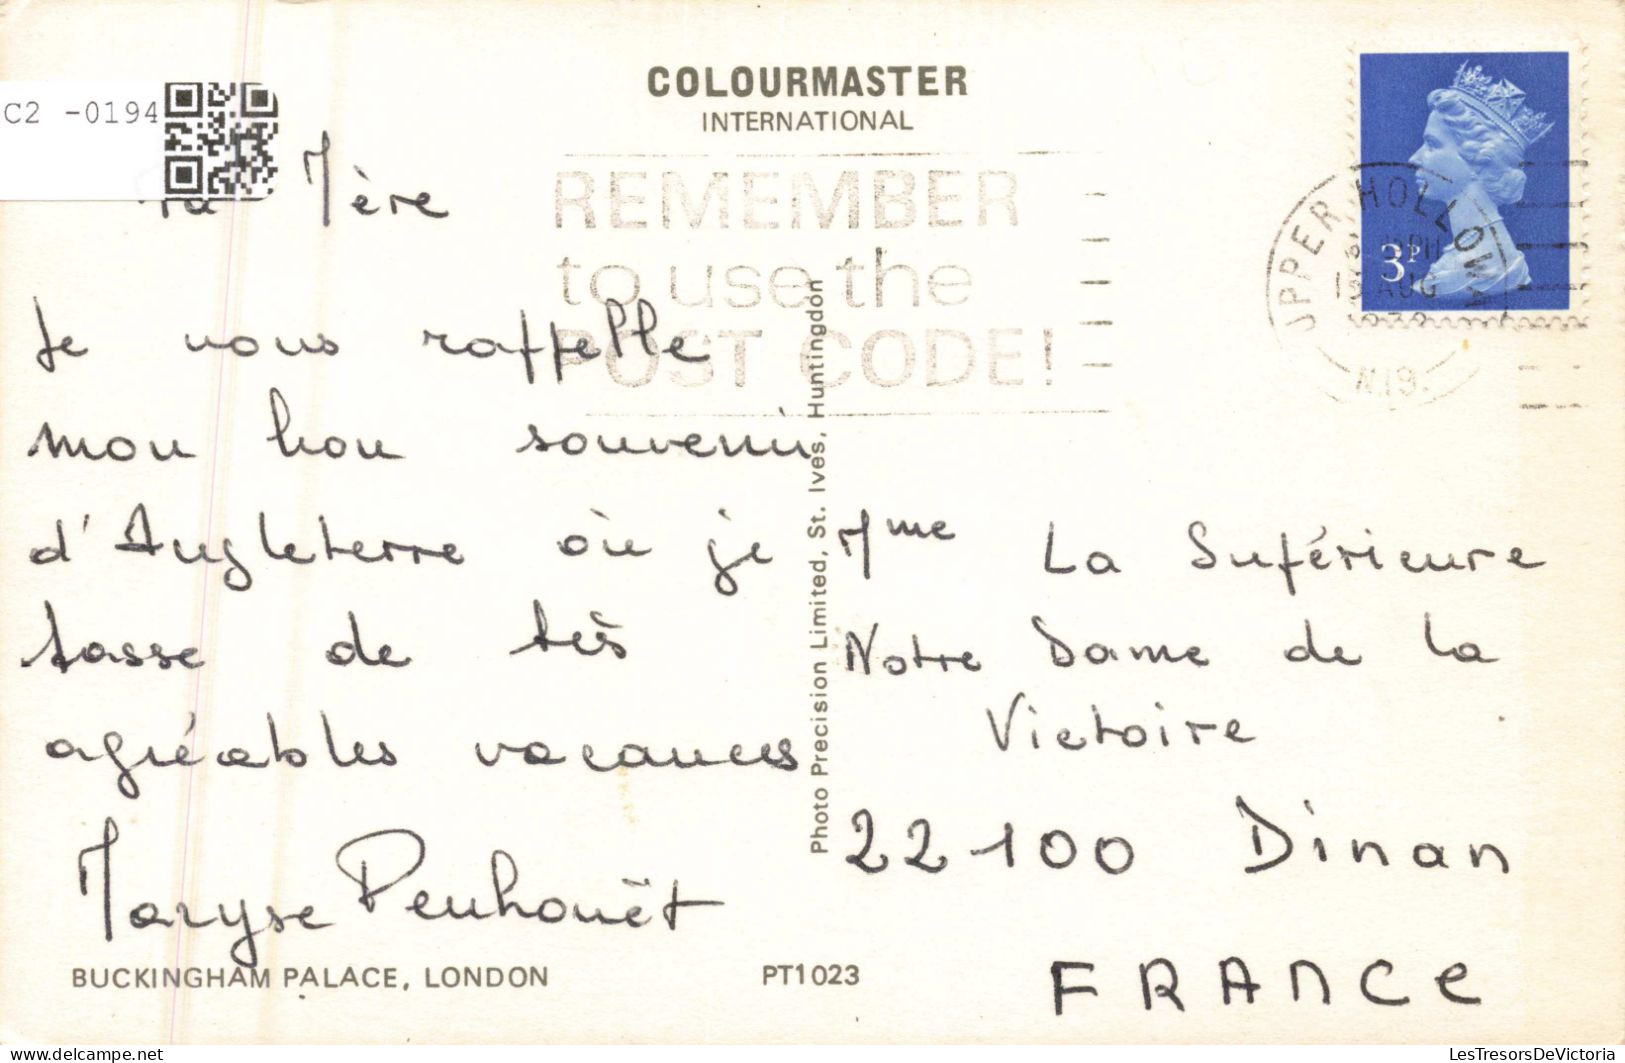 C2 -0194
COLOURMASTER
INTERNATIONAL
REMEMBER
to use the
POST CODE!
UPPER HOLLOWAY
AUG
N19.
3P
Mère
Je vous rappelle
mon bon souvenir
d'Angleterre où je
passe de très
agréables vacances
Maryse Penhouët
BUCKINGHAM PALACE, LONDON
PT1023
Photo Precision Limited, St. Ives, Huntingdon
Mme La Supérieure
Notre Dame de la
Victoire
22100 Dinan
FRANCE
LesTresorsDeVictoria